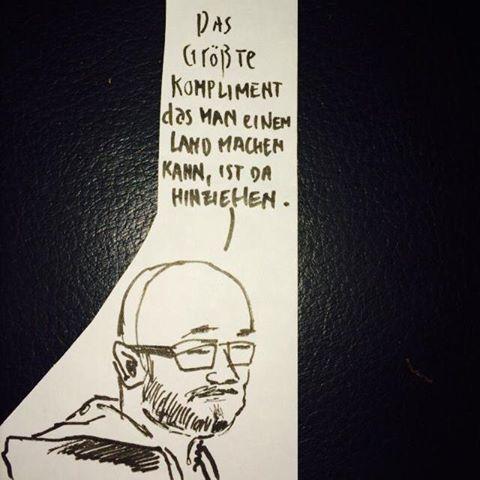 DAS
GRÖßTE
KOMPLIMENT
das MAN EINEM
LAND MACHEN
KANN, IST DA
HINZIEHEN.